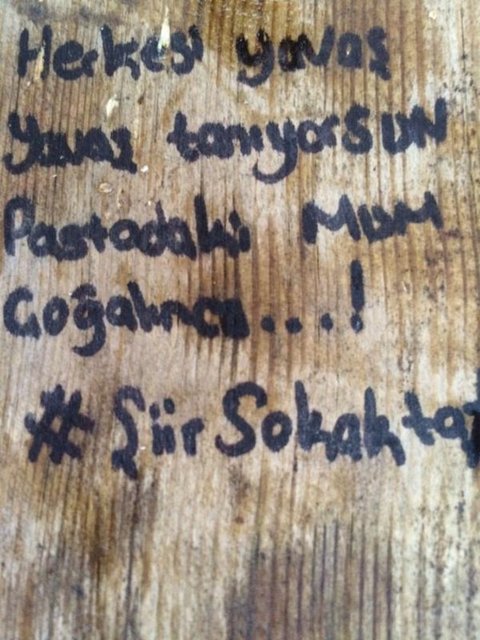 Herkesi yavaş
yavaş tanıyorsun
Pastadaki Mum
Çoğalınca...!
#ŞiirSokakta